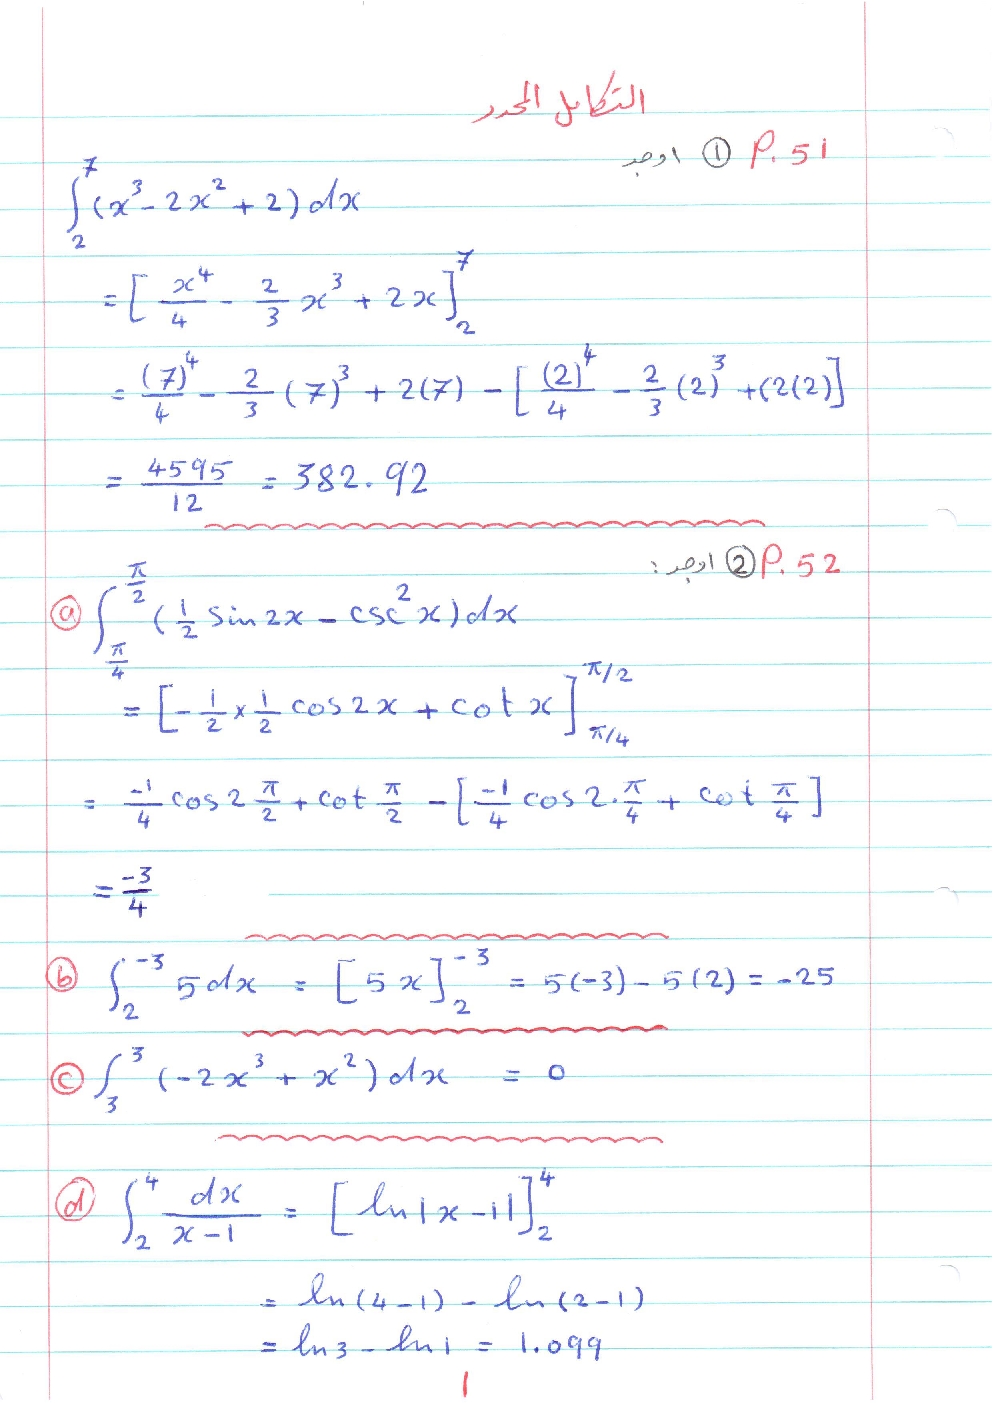 التكامل المحدد
P.51 ① اوجد
∫₂⁷ (x³ - 2x² + 2) dx
= [x⁴/4 - 2/3 x³ + 2x]₂⁷
= (7)⁴/4 - 2/3 (7)³ + 2(7) - [(2)⁴/4 - 2/3 (2)³ + (2(2)]
= 4595/12 = 382.92
P.52 ② اوجد :
ⓐ ∫_{π/4}^{π/2} (1/2 sin 2x - csc² x) dx
= [-1/2 × 1/2 cos 2x + cot x]_{π/4}^{π/2}
= -1/4 cos 2 π/2 + cot π/2 - [-1/4 cos 2 . π/4 + cot π/4]
= -3/4
ⓑ ∫₂⁻³ 5 dx = [5x]₂⁻³ = 5(-3) - 5(2) = -25
ⓒ ∫₃³ (-2x³ + x²) dx = 0
ⓓ ∫₂⁴ dx/(x-1) = [ln|x-1|]₂⁴
= ln(4-1) - ln(2-1)
= ln 3 - ln 1 = 1.099
1